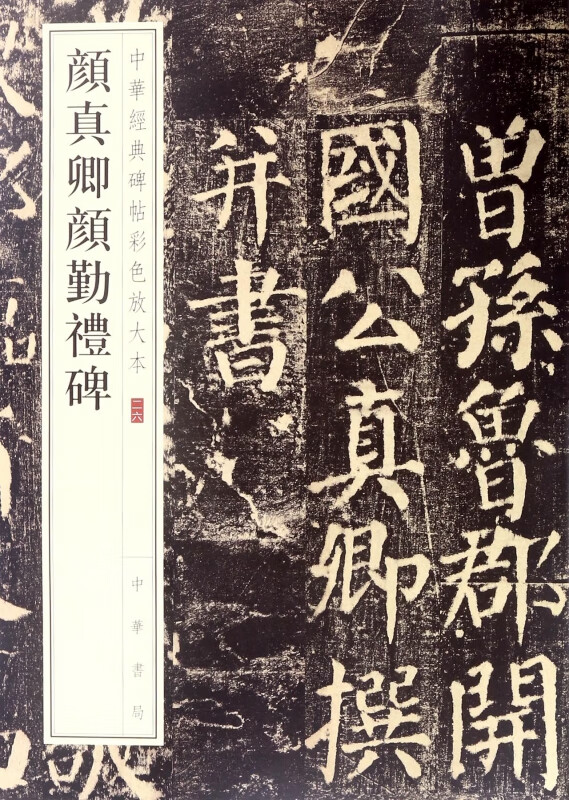 曾孫魯郡開
國公真卿撰
并書
中華經典碑帖彩色放大本 二六
中華書局
顏真卿顏勤禮碑